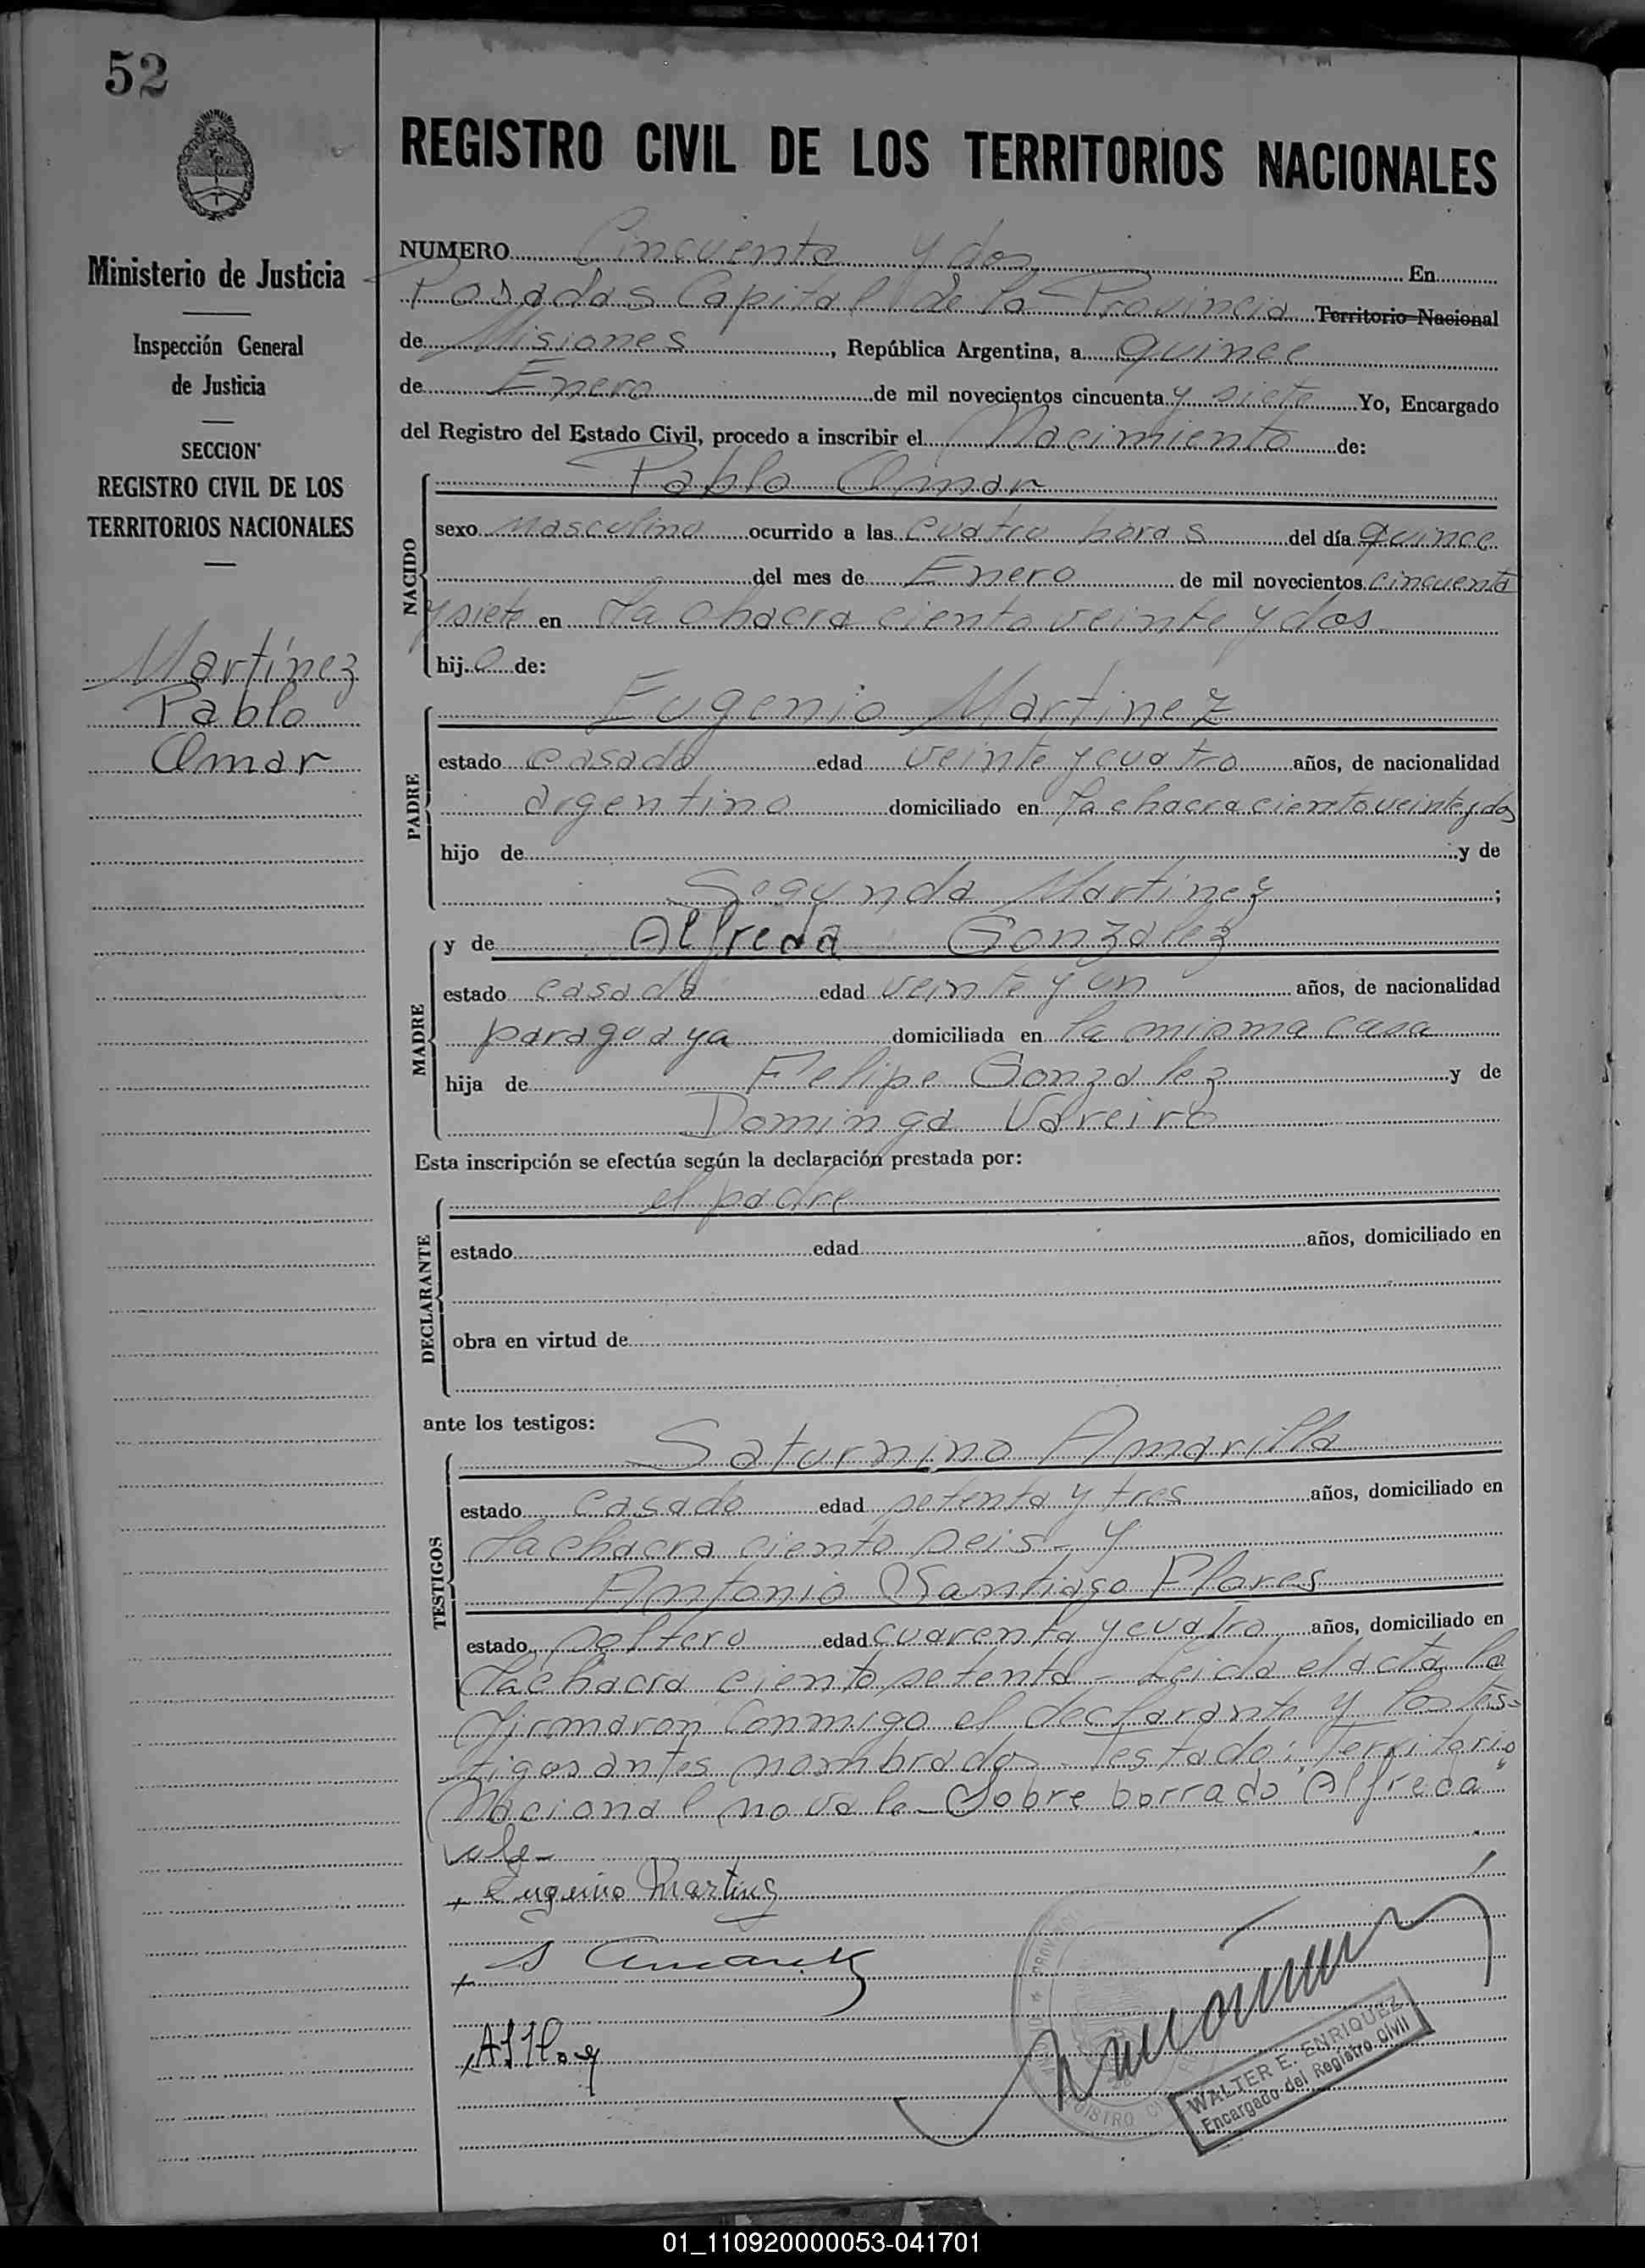 52
REGISTRO CIVIL DE LOS TERRITORIOS NACIONALES
Ministerio de Justicia
Inspección General
de Justicia
SECCION
REGISTRO CIVIL DE LOS
TERRITORIOS NACIONALES
Martínez
Pablo
Omar
NUMERO Cincuenta y dos En
Posadas Capital de la Provincia Territorio Nacional
de Misiones, República Argentina, a quince
de Enero de mil novecientos cincuenta y siete Yo, Encargado
del Registro del Estado Civil, procedo a inscribir el Nacimiento de:
NACIDO
Pablo Omar
sexo masculino ocurrido a las cuatro horas del día quince
del mes de Enero de mil novecientos cincuenta
y siete en la chacra ciento veinte y dos
hijo de:
PADRE
Eugenio Martinez
estado casado edad veinte y cuatro años, de nacionalidad
argentino domiciliado en la chacra ciento veinte y dos
hijo de y de
Segunda Martinez;
MADRE
y de Alfreda Gonzalez
estado casada edad veinte y un años, de nacionalidad
paraguaya domiciliada en la misma casa
hija de Felipe Gonzalez y de
Dominga Vareiro
Esta inscripción se efectúa según la declaración prestada por:
DECLARANTE
el padre
estado edad años, domiciliado en
obra en virtud de
ante los testigos:
TESTIGOS
Saturnino Amarilla
estado casado edad setenta y tres años, domiciliado en
la chacra ciento seis - y
Antonio Santiago Flores
estado soltero edad cuarenta y cuatro años, domiciliado en
la chacra ciento setenta - Leida el acta la
firmaron conmigo el declarante y los tes=
tigos antes nombrados - Testado: Territorio
Nacional no vale - Sobre borrado "Alfreda"
vale -
Eugenio Martinez
WALTER E. ENRIQUEZ
Encargado del Registro Civil
01_110920000053-041701